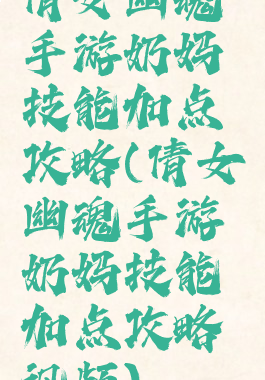 倩女幽魂
手游奶妈
技能加点
攻略(倩女
幽魂手游
奶妈技能
加点攻略
视频)